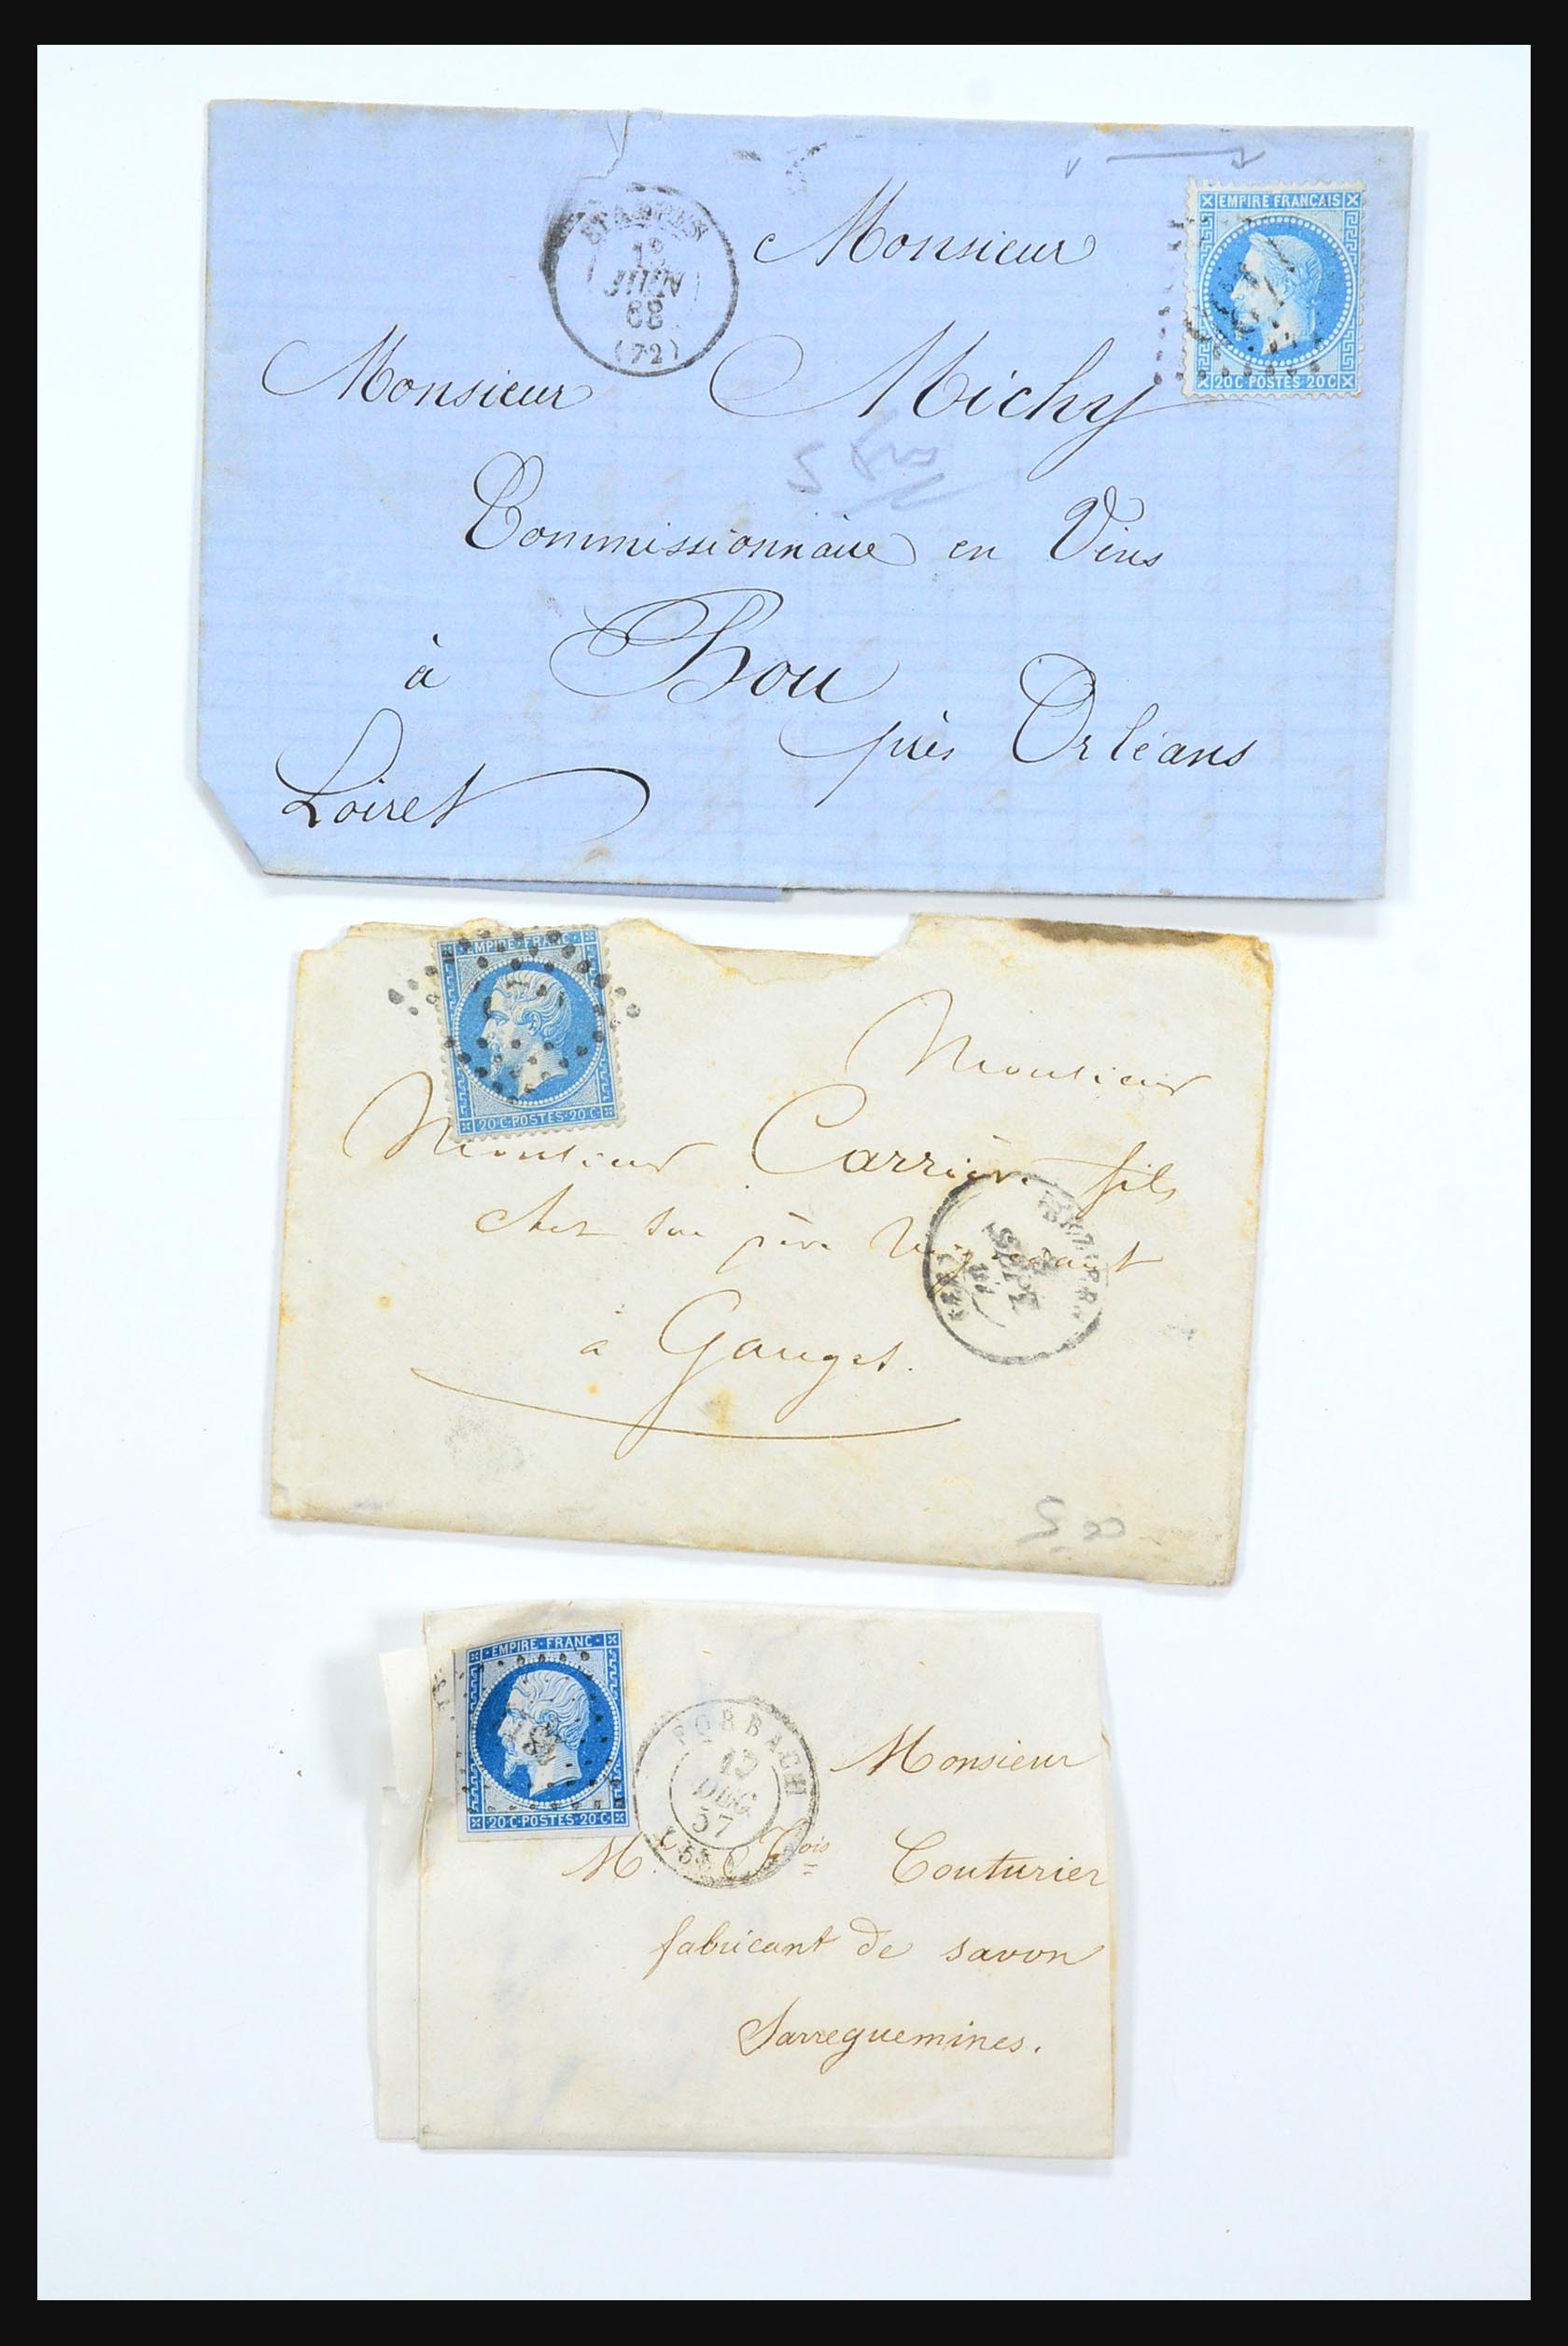 EMPIRE FRANCAIS
20 C POSTES 20 C
ETAMPES
JUIN
68
(72)
Monsieur
Monsieur Michy
5 frs
Commissionnaire en Vins
à Bou
près Orléans
Loiret
EMPIRE·FRANC·
20·C·POSTES·20·C
Monsieur
Monsieur Carrière fils
chez son père Négociant
à Ganges.
SEPT
5.00
EMPIRE·FRANC·
20·C·POSTES·20·C
FORBACH
DEC
57
Monsieur
M. Couturier
fabricant de savon
Sarreguemines.